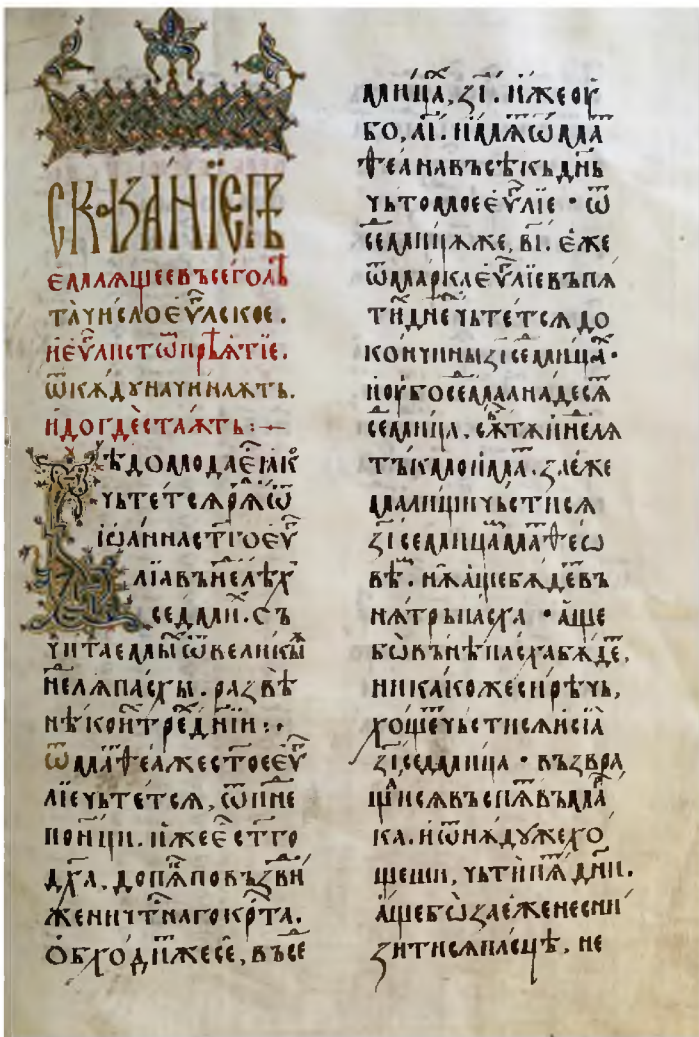 СКАЗАНЇЕ ПР҃
ЕМЛѦЩЕЕ ВЪСЕГО ЛѢ
ТА ЧИСЛО ЕѴ҃ЛСКОЕ.
И ЕѴ҃ЛИСТѠ ПРѢѦТЇЕ.
Ѿ КѪДУ НАЧИНАѪТЬ.
И ДО ГДЕ СТАѪТЬ :—
ВѢДОМО ДА Е҆ ꙖКѠ
ЧЬТЕТСѦ Ѿ
ІѠАННА СТ҃ГО ЕѴ҃
ЛІА ВЪ НЕЛѢХ
СЕДМИ. СЪ
ЧИТАЕМЫ Ѿ ВЕЛИКЫѦ
НЕ҃ЛѦ ПАСХЫ. РАЗВѢ
Ѿ МАТѲЕА ЖЕ СТОЕ ЕѴ҃
ЛІЕ ЧЬТЕТСѦ, Ѿ ПН҃Е
ПОНЦИ. ИЖЕ Е҆ СТ҃ГО
ДХ҃А, ДО ПѦ ПО ВЪЗВИ
ЖЕНИ ЧТ҃НАГО КРТ҃А.
ОБХОДИ ЖЕ СЕ, ВЪ СЕ
ДМИЦА, ЗІ҃. ИЖЕ ОУ
БО, АІ҃. И МЛѦ Ѿ МА
ѲЕА НА ВЪСѢКЪ ДН҃Ь
ЧЬТОМОЕ ЕѴ҃ЛІЕ · Ѿ
СЕДМИЦѦ ЖЕ, ВІ҃. ЕЖЕ
Ѿ МАРКА ЕѴ҃ЛІЕ ВЪ ПѦ
ТИ ДН҃Е ЧЬТЕТСѦ ДО
КОНЧИНЫ ЗІ҃ СЕДМИЦА·
И ОУБО СЕДМАѦ НАДЕСѦ
СЕДМИЦА. СѪТѦ И НЕ҃ЛѦ
ТЪКМО ИМА. ЗАЕЖЕ
ЗІ҃ СЕДМИЦА МАТѲЕѠ
ВѢ. НѪ АЩЕ БѪДЕ ВЪ
НѪТРЬ ПАСХА · АЩЕ
БѠ ВЪНѢ ПАСХА БѪДЕ,
НИКАКОЖЕ СИ РѢЧЬ,
ХОЩЕ ЧЬСТИСѦ И СІА
ЗІ҃ СЕДМИЦА · ВЪЗВРА
ЩИСѦ ВЪСПѦ ВЪ МА
КА. И ѾНѪДУЖЕ ХО
ЩЕШИ, ЧЬТИ ПѦ ДН҃И.
АЩЕ БѠ ЗАЕЖЕ НЕ СНИ
ЗИТИСѦ ПАСЦѢ, НЕ